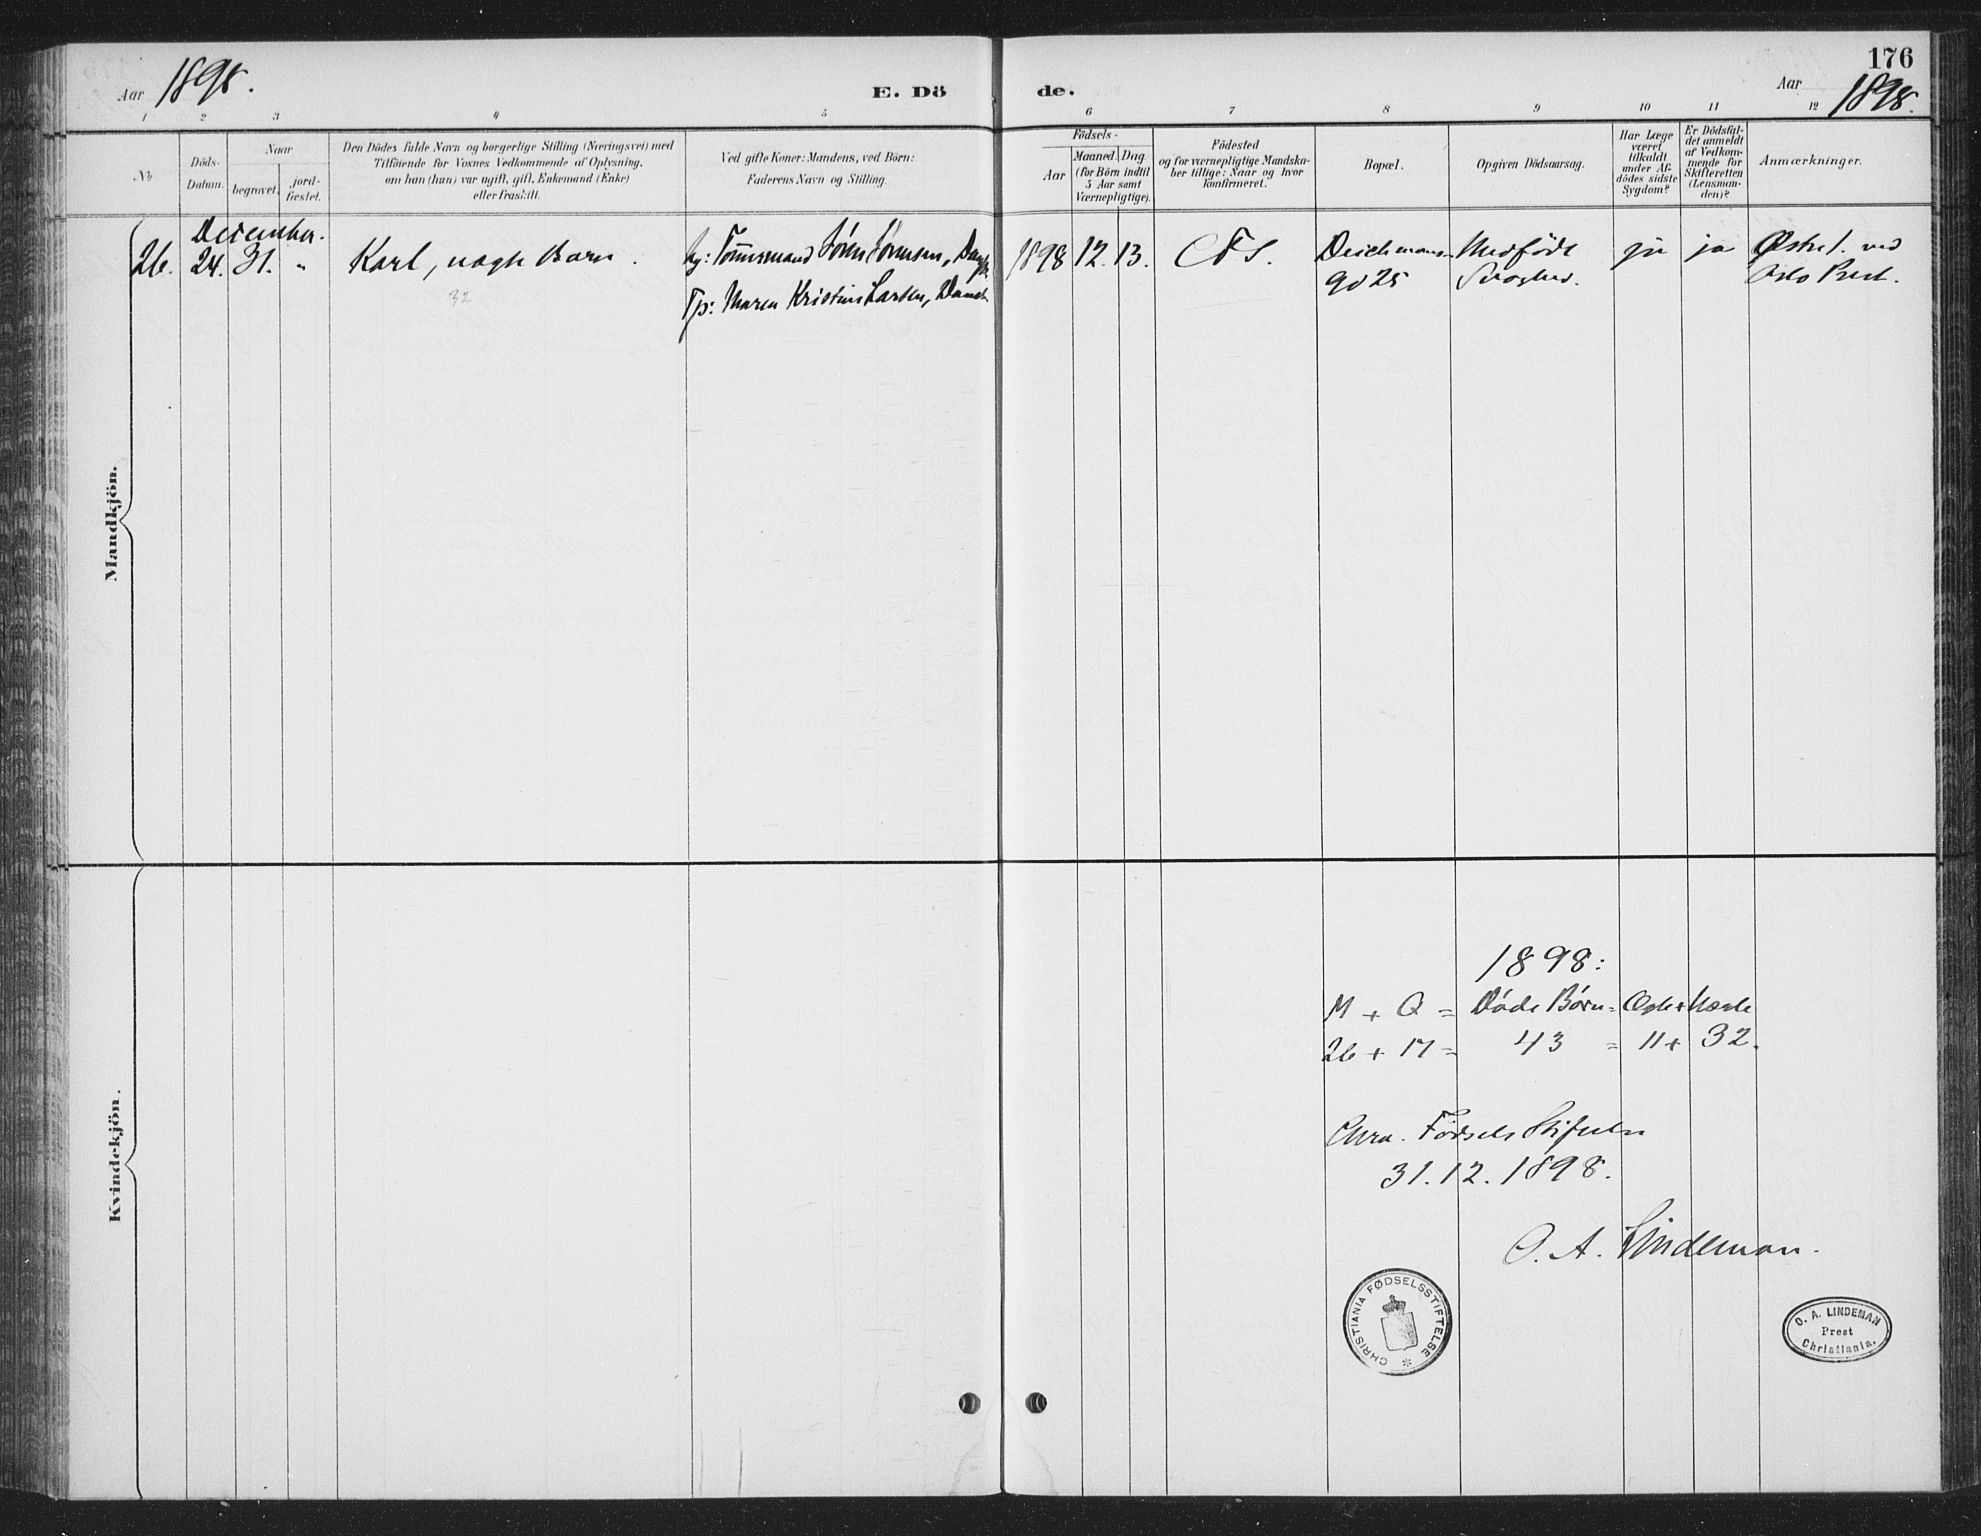 176
Aar 1898.
E. Dö
de.
Aar 1898.
1 2 3 4 5 6 7 8 9 10 11 12
No
Döds-
Datum.
Naar
begravet.
jord-
fæstet.
Den Dödes fulde Navn og borgerlige Stilling (Næringsvei) med
Tilföiende for Voxnes Vedkommende af Oplysning,
om han (hun) var ugift, gift, Enkemand (Enke)
eller fraskilt.
Ved gifte Koner: Mandens, ved Börn:
Faderens Navn og Stilling.
Födsels-
Aar
Maaned. Dag.
(for Börn indtil
5 Aar samt
Værnepligtige).
Födested
og for værnepligtige Mandska-
ber tillige: Naar og hvor
konfirmeret.
Bopæl.
Opgiven Dödsaarsag.
Har Læge
været
tilkaldt
under Af-
dödes sidste
Sygdom?
Er Dödsfal-
det anmeldt
af Vedkom-
mende for
Skifteretten
(Lensman-
den)?
Anmærkninger.
Mandkjön.
December.
26. 24. 31. "
Karl, uægte Barn.
32
Tømmermand Søren Sørensen,
Tjp: Maren Kristine Larsen,
1898 12. 13.
CFS.
Deichmans-
gd 25
Medfødt
Svaghed.
ja
ja
Østre f. ved
Oslo Prest.
Kvindekjön.
1898:
M + Q = Døde Børn = Ægte + Uægte
26 + 17 = 43 = 11 + 32.
Chra. Fødsels Stiftelse
31.12.1898.
O. A. Lindeman.
CHRISTIANIA FØDSELSSTIFTELSE
O. A. LINDEMAN
Prest
Christiania.